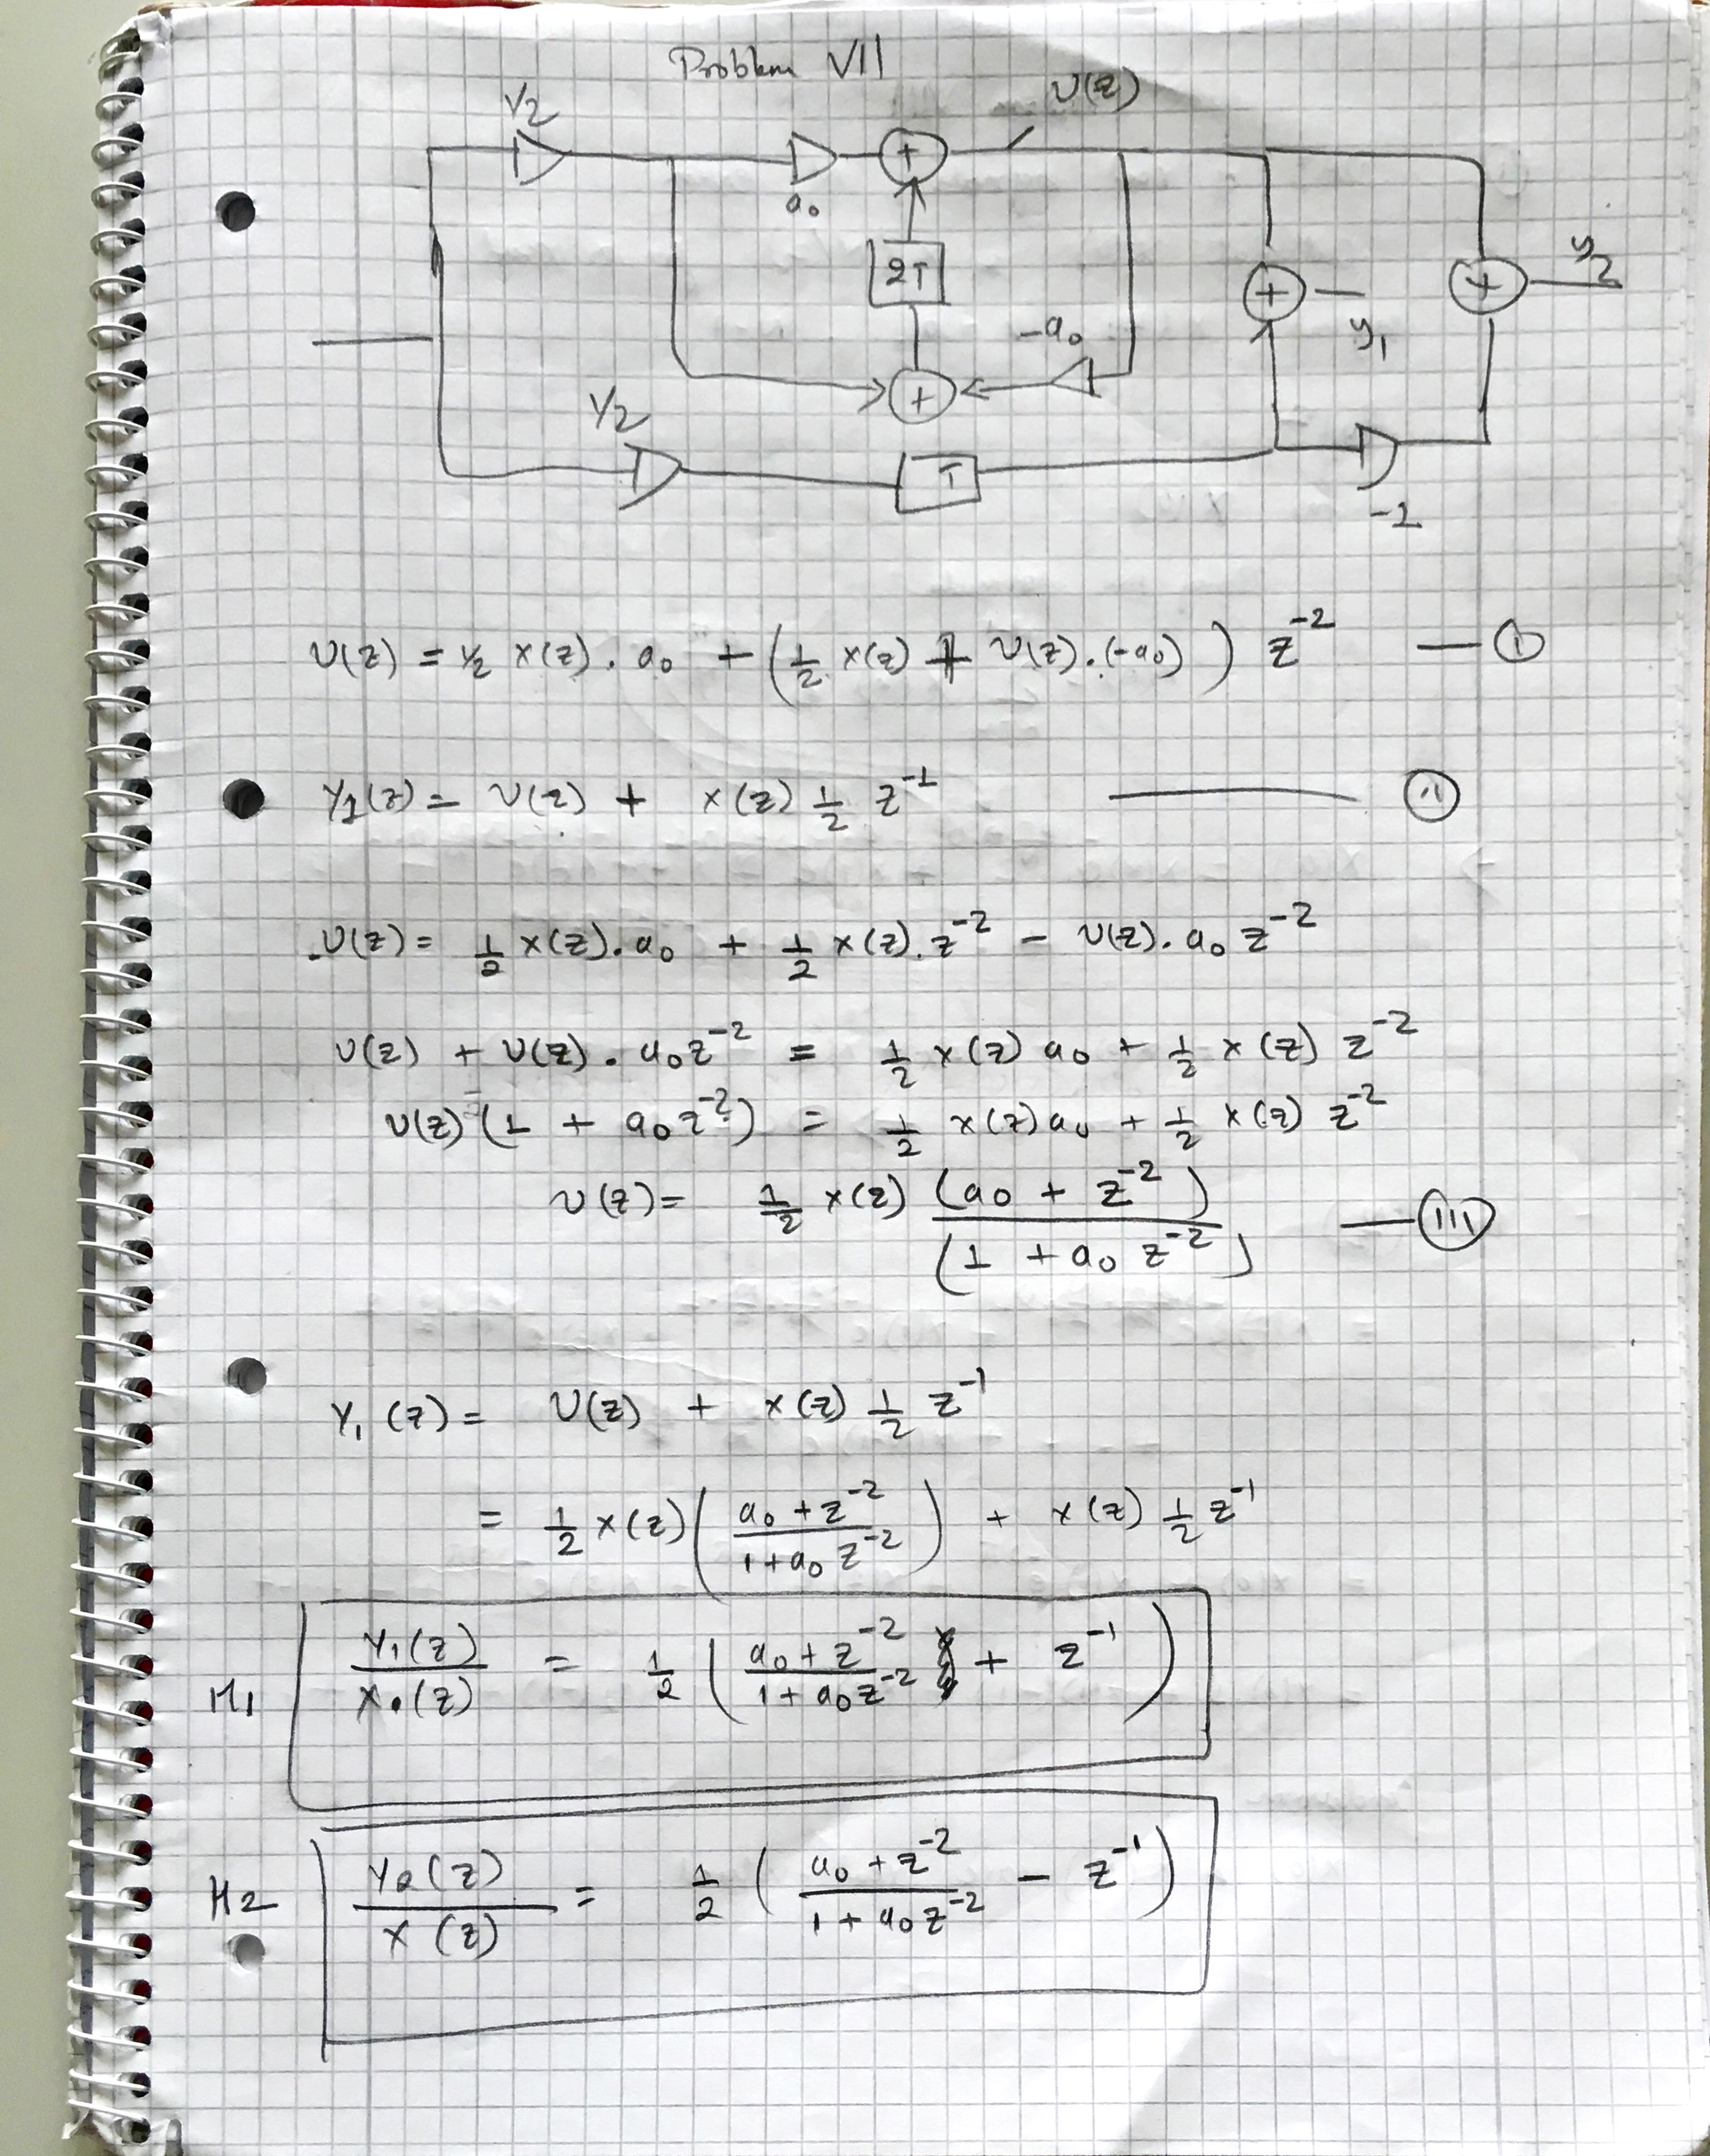 Problem VII
1/2
U(z)
a₀
+
2T
+
+
y₂
y₁
-a₀
+
1/2
T
-1
U(z) = ½ X(z) . a₀ + (½ X(z) + U(z).(-a₀)) z⁻² — (I)
Y1(z) = U(z) + X(z) ½ z⁻¹ — (II)
U(z) = ½ X(z). a₀ + ½ X(z). z⁻² - U(z). a₀ z⁻²
U(z) + U(z) . a₀z⁻² = ½ X(z) a₀ + ½ X(z) z⁻²
U(z) (1 + a₀z⁻²) = ½ X(z) a₀ + ½ X(z) z⁻²
U(z) = ½ X(z) (a₀ + z⁻²) / (1 + a₀ z⁻²) — (III)
Y₁(z) = U(z) + X(z) ½ z⁻¹
= ½ X(z) ((a₀ + z⁻²) / (1 + a₀ z⁻²)) + X(z) ½ z⁻¹
H1 Y₁(z) / X(z) = ½ ((a₀ + z⁻²) / (1 + a₀z⁻²) + z⁻¹)
H2 Y2(z) / X(z) = ½ ((a₀ + z⁻²) / (1 + a₀z⁻²) - z⁻¹)